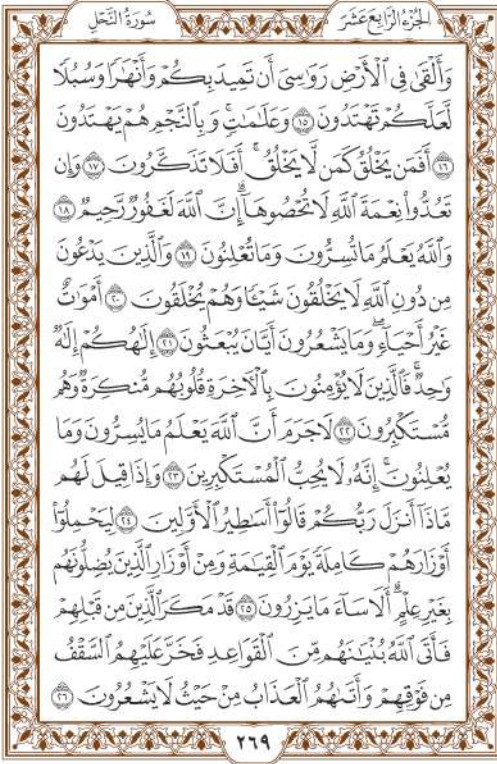 الجُزْءُ الرَّابِعَ عَشَرَ
سُورَةُ النَّحْلِ
وَأَلْقَىٰ فِي ٱلْأَرْضِ رَوَٰسِيَ أَن تَمِيدَ بِكُمْ وَأَنْهَٰرًا وَسُبُلًا
لَّعَلَّكُمْ تَهْتَدُونَ ١٥ وَعَلَٰمَٰتٍۚ وَبِٱلنَّجْمِ هُمْ يَهْتَدُونَ
١٦ أَفَمَن يَخْلُقُ كَمَن لَّا يَخْلُقُۗ أَفَلَا تَذَكَّرُونَ ١٧ وَإِن
تَعُدُّوا۟ نِعْمَةَ ٱللَّهِ لَا تُحْصُوهَآۗ إِنَّ ٱللَّهَ لَغَفُورٌ رَّحِيمٌ ١٨
وَٱللَّهُ يَعْلَمُ مَا تُسِرُّونَ وَمَا تُعْلِنُونَ ١٩ وَٱلَّذِينَ يَدْعُونَ
مِن دُونِ ٱللَّهِ لَا يَخْلُقُونَ شَيْـًٔا وَهُمْ يُخْلَقُونَ ٢٠ أَمْوَٰتٌ
غَيْرُ أَحْيَآءٍۖ وَمَا يَشْعُرُونَ أَيَّانَ يُبْعَثُونَ ٢١ إِلَٰهُكُمْ إِلَٰهٌ
وَٰحِدٌۚ فَٱلَّذِينَ لَا يُؤْمِنُونَ بِٱلْأَخِرَةِ قُلُوبُهُم مُّنكِرَةٌ وَهُم
مُّسْتَكْبِرُونَ ٢٢ لَا جَرَمَ أَنَّ ٱللَّهَ يَعْلَمُ مَا يُسِرُّونَ وَمَا
يُعْلِنُونَۚ إِنَّهُۥ لَا يُحِبُّ ٱلْمُسْتَكْبِرِينَ ٢٣ وَإِذَا قِيلَ لَهُم
مَّاذَآ أَنزَلَ رَبُّكُمْ قَالُوٓا۟ أَسَٰطِيرُ ٱلْأَوَّلِينَ ٢٤ لِيَحْمِلُوٓا۟
أَوْزَارَهُمْ كَامِلَةً يَوْمَ ٱلْقِيَٰمَةِ وَمِنْ أَوْزَارِ ٱلَّذِينَ يُضِلُّونَهُم
بِغَيْرِ عِلْمٍۗ أَلَا سَآءَ مَا يَزِرُونَ ٢٥ قَدْ مَكَرَ ٱلَّذِينَ مِن قَبْلِهِمْ
فَأَتَى ٱللَّهُ بُنْيَٰنَهُم مِّنَ ٱلْقَوَاعِدِ فَخَرَّ عَلَيْهِمُ ٱلسَّقْفُ
مِن فَوْقِهِمْ وَأَتَىٰهُمُ ٱلْعَذَابُ مِنْ حَيْثُ لَا يَشْعُرُونَ ٢٦
٢٦٩